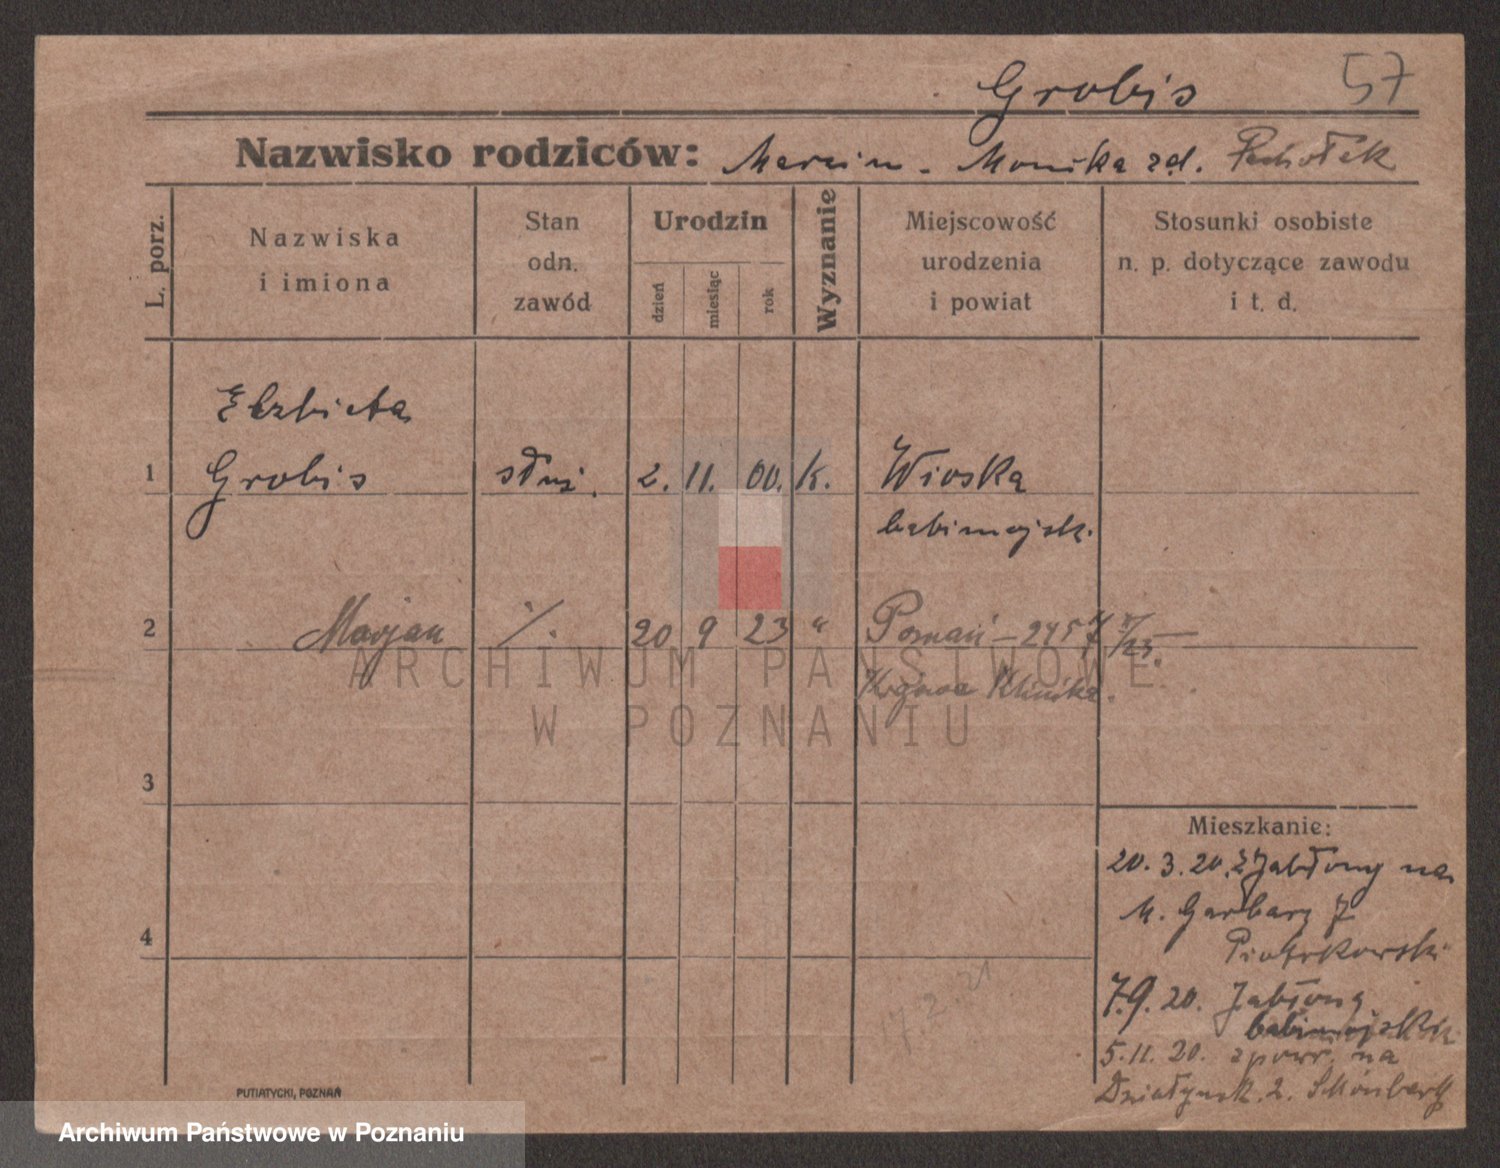 Grobis 57
Nazwisko rodziców: Marcin - Monika zd. Pachołek
L. porz.
Nazwiska
i imiona
Stan
odn.
zawód
Urodzin
dzień
miesiąc
rok
Wyznanie
Miejscowość
urodzenia
i powiat
Stosunki osobiste
n. p. dotyczące zawodu
i t. d.
Elzbieta
1 Grobis służ. 2. 11. 00. k. Wioska
babimojsk.
2 Marjan /. 20 9 23 " Poznań - 2457
Klinika.
ARCHIWUM PAŃSTWOWE
W POZNANIU
3
4
Mieszkanie:
20. 3. 20. z Jabłony na
M. Garbary 7
Piotrkowski
7.9. 20. Jabłona
babimojski
5. 11. 20. z powr. na
Działyńsk. 2. Schönberg
17. 2. 21
PUTIATYCKI, POZNAŃ
Archiwum Państwowe w Poznaniu